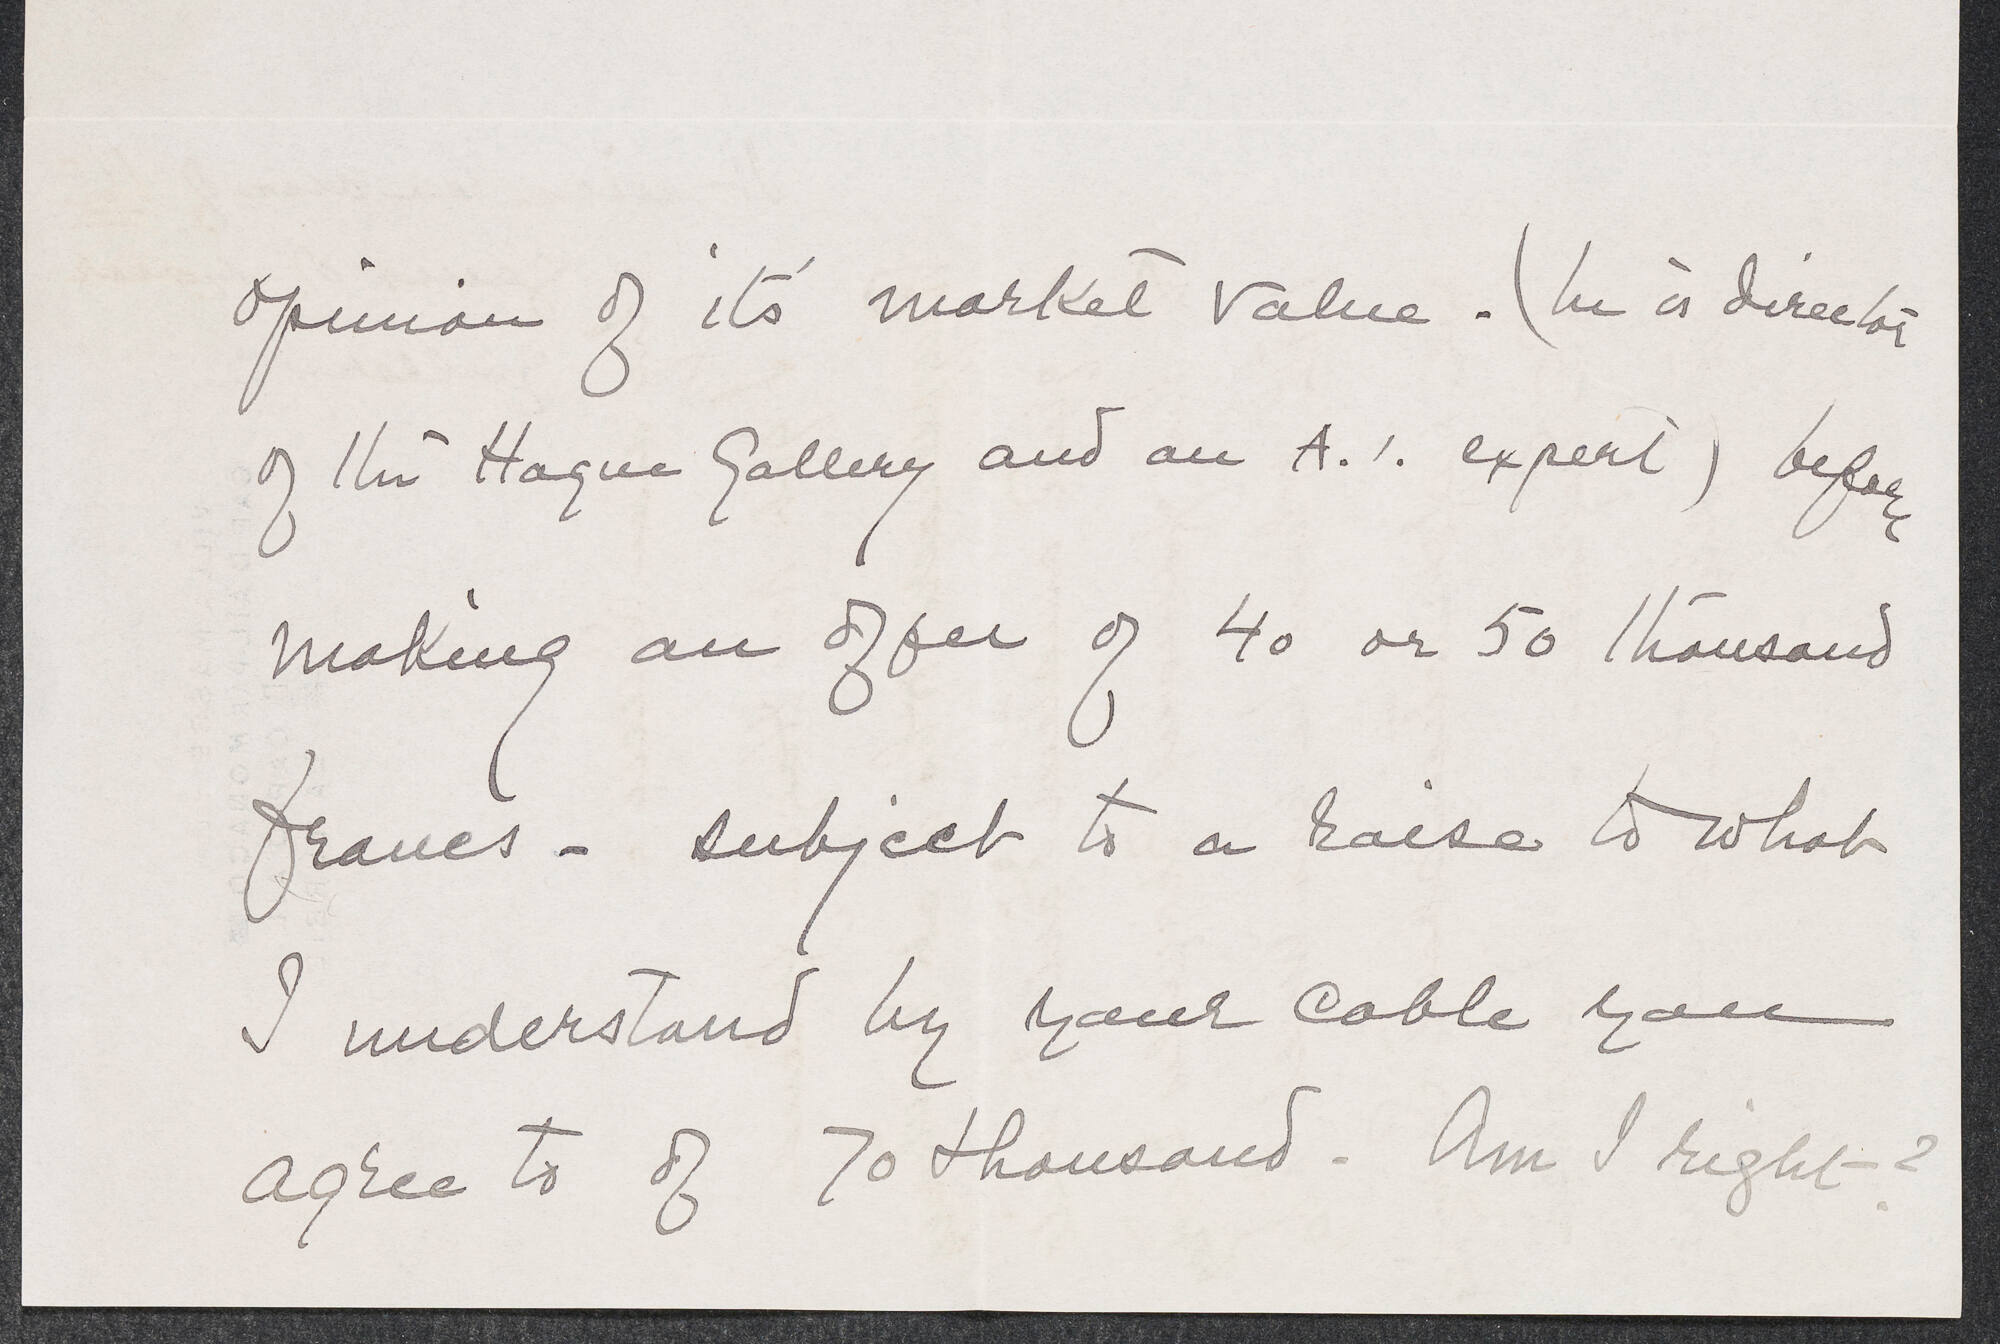 opinion of it's market value. (he is director
of the Hague Gallery and an A.1. expert) before
making an offer of 40 or 50 thousand
francs - subject to a raise to what
I understand by your cable you
agree to of 70 thousand - Am I right?